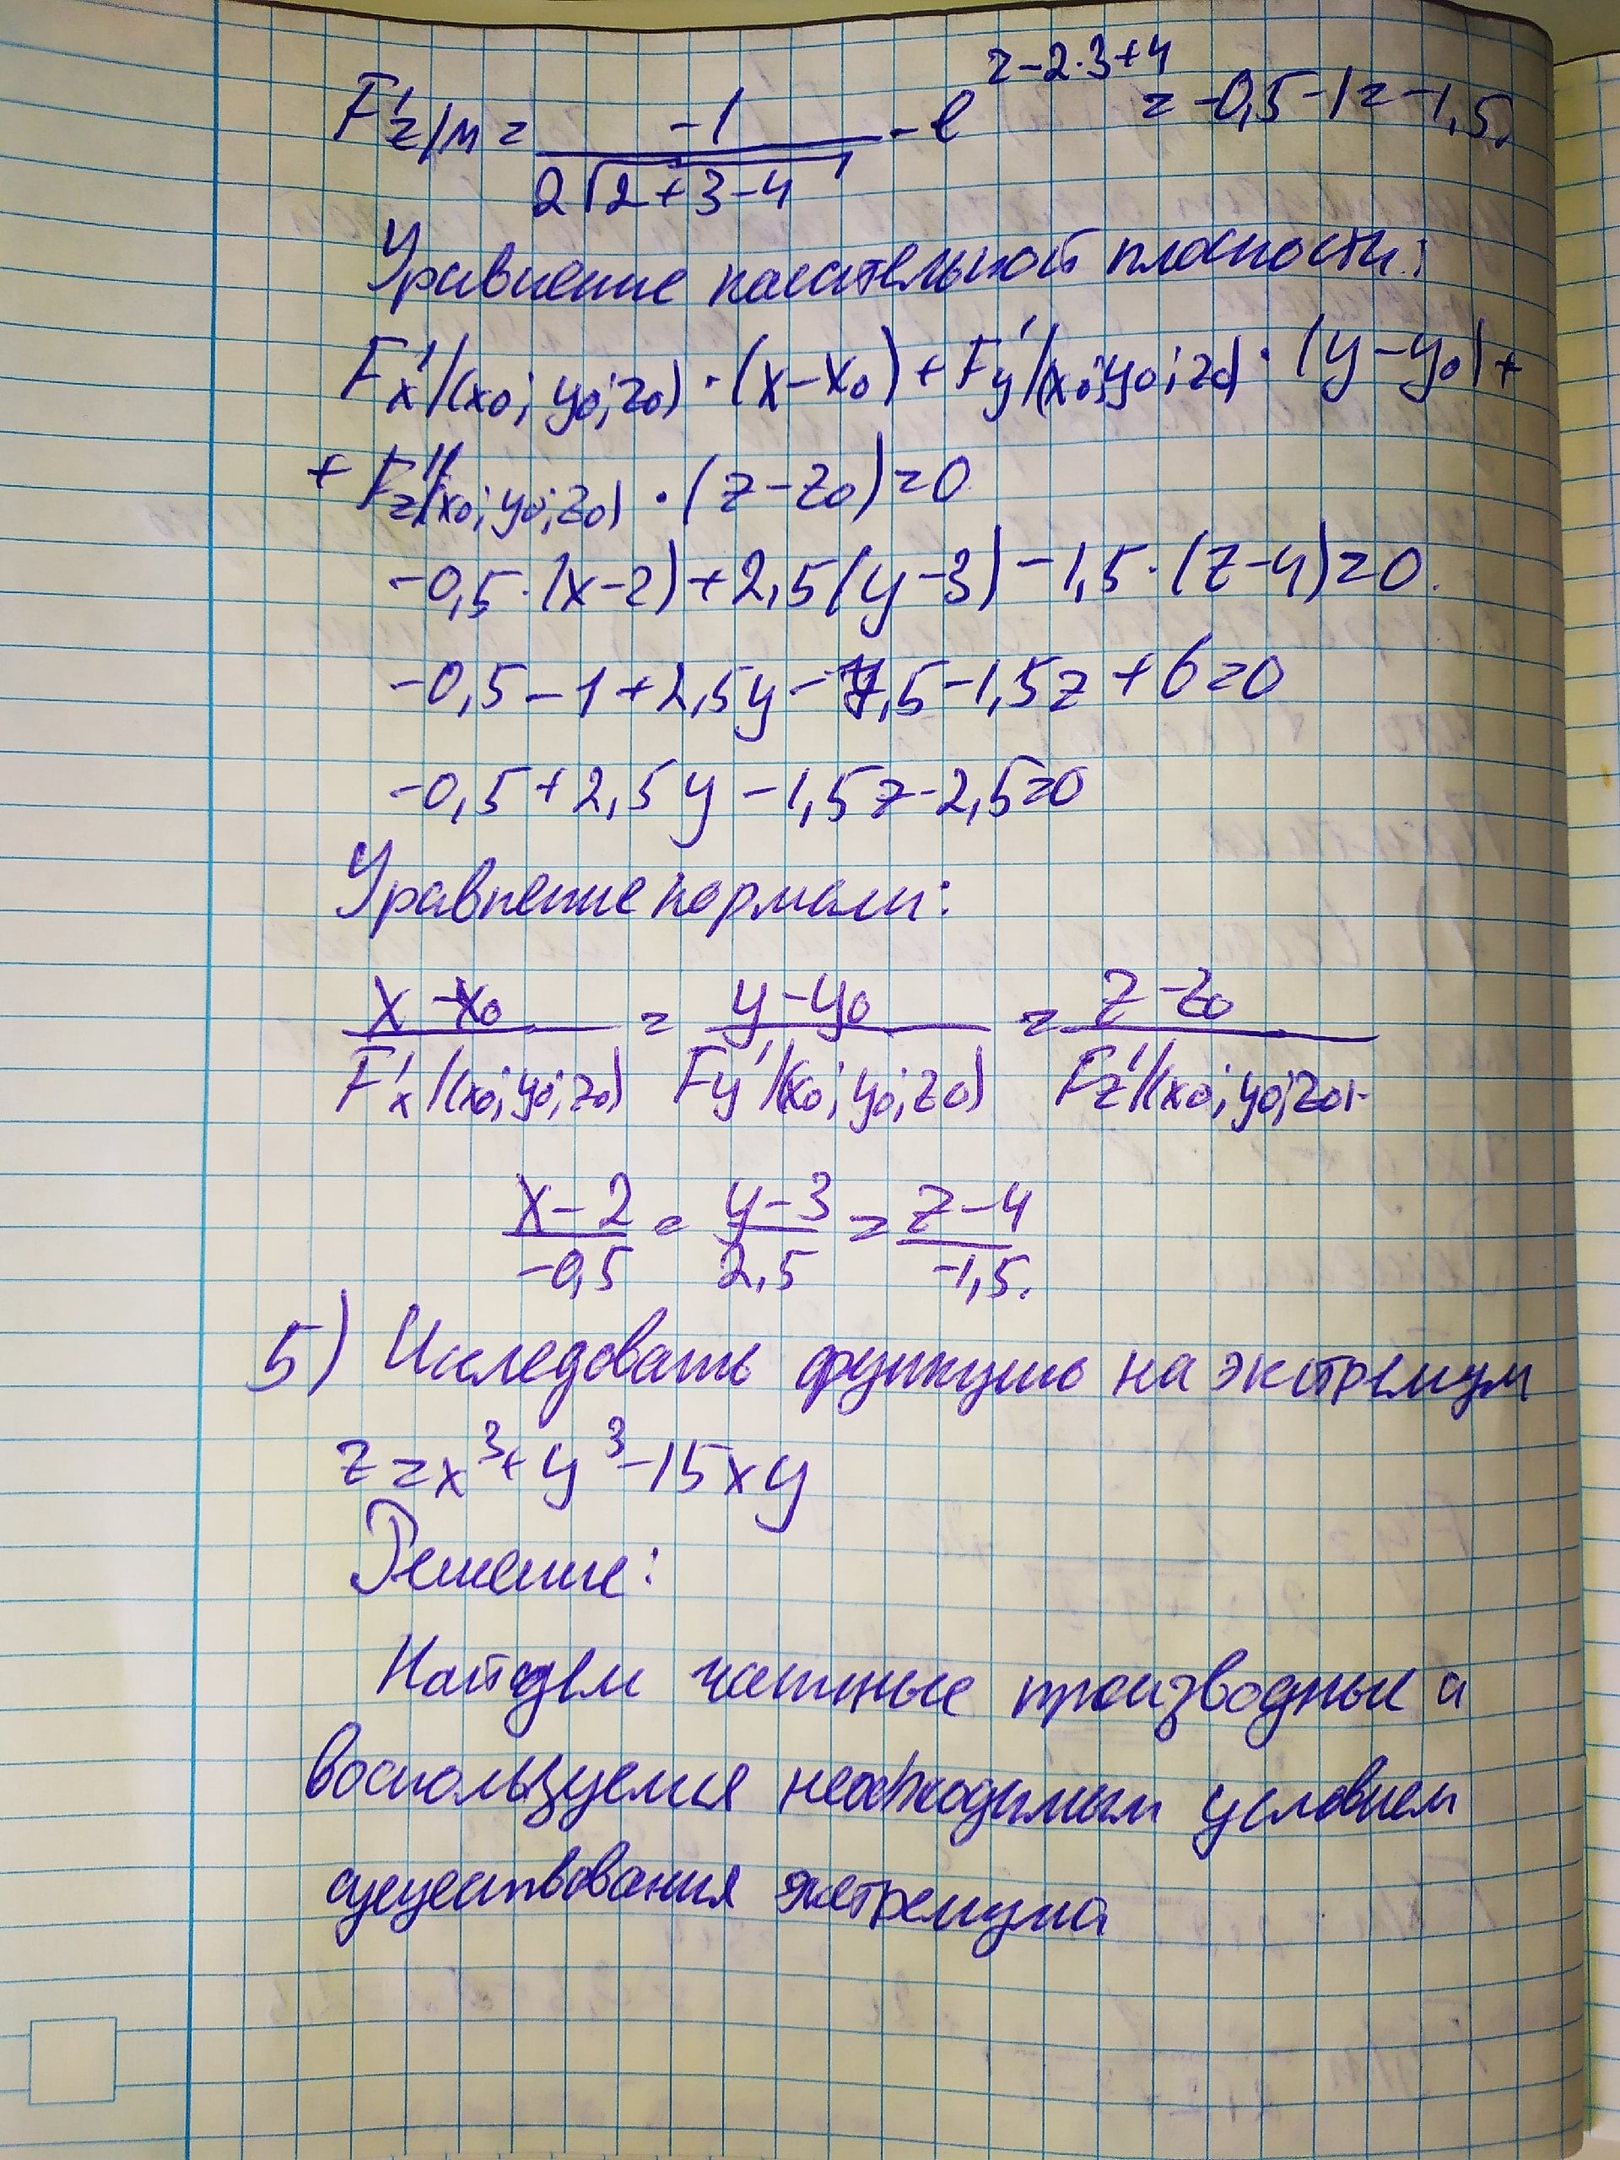 F'z/м = -1/(2√(2+3-4)) - e^(2-2·3+4) = -0,5-1 = -1,5.
Уравнение касательной плоскости:
F'x/(x₀; y₀; z₀) · (x-x₀) + F'y/(x₀; y₀; z₀) · (y-y₀) +
+ F'z/(x₀; y₀; z₀) · (z-z₀) = 0
-0,5·(x-2)+2,5(y-3)-1,5·(z-4)=0.
-0,5-1+2,5y-7,5-1,5z+6=0
-0,5+2,5y-1,5z-2,5=0
Уравнение нормали:
(x-x₀)/(F'x/(x₀; y₀; z₀)) = (y-y₀)/(F'y/(x₀; y₀; z₀)) = (z-z₀)/(F'z/(x₀; y₀; z₀))
(x-2)/(-0,5) = (y-3)/(2,5) = (z-4)/(-1,5).
5) Исследовать функцию на экстремум
z=x³+y³-15xy
Решение:
Найдем частные производные и
воспользуемся необходимым условием
существования экстремума